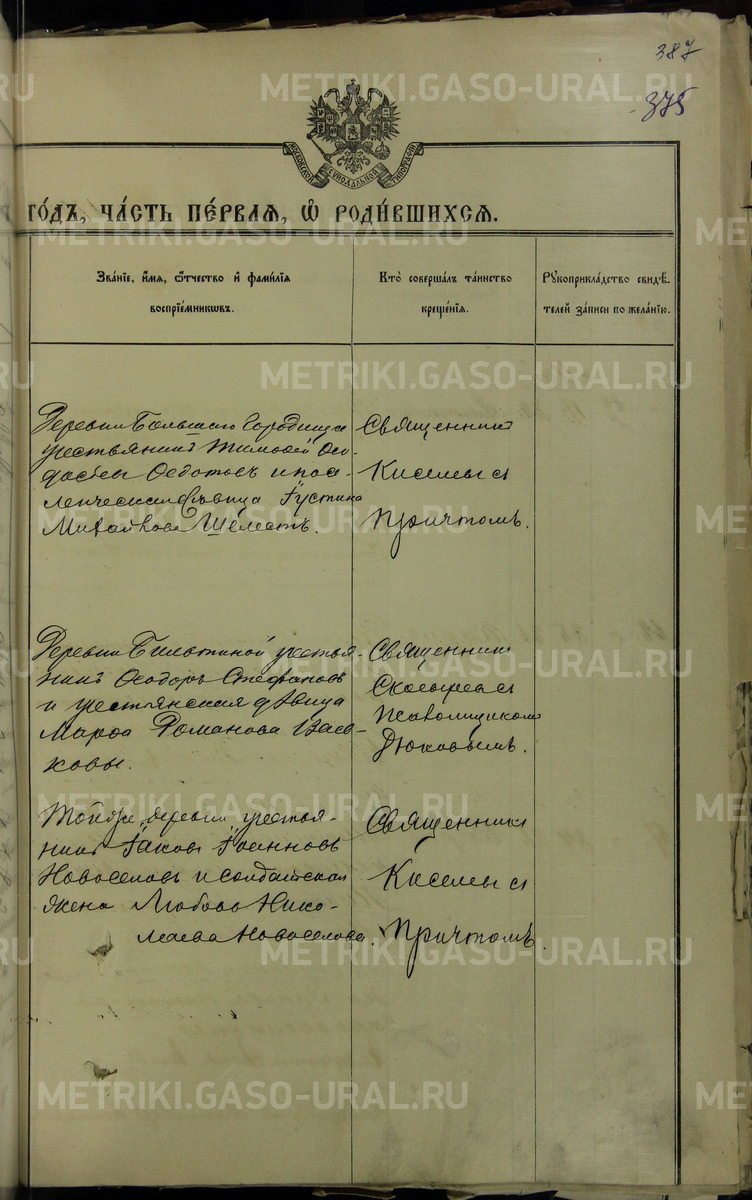 387
375
METRIKI.GASO-URAL.RU
МОСКОВСКОЙ СѴНОДАЛЬНОЙ ТИПОГРАФІИ
ГОДЪ, ЧАСТЬ ПЕРВАЯ, Ѡ РОДИВШИХСЯ.
Званіе, имя, отчество и фамилія
воспріемниковъ.
Кто совершалъ таинство
крещенія.
Рукоприкладство свидѣ-
телей записи по желанію.
Деревни Большаго Городища
крестьянинъ Тимофей
Ѳедотовъ и посе-
ленческая дѣвица Іустина
Михайлова Шелестъ.
Священникъ
Киселевъ съ
Причтомъ.
Деревни крестья-
нинъ Ѳеодоръ Стефановъ
и крестьянская дѣвица
Марѳа Романова
ковы.
Священникъ
съ
Псаломщикомъ
Дюковымъ.
Той же деревни крестья-
нинъ Іаковъ Іоанновъ
Новоселовъ и солдатская
жена Любовь Нико-
лаева Новоселова.
Священникъ
Киселевъ съ
Причтомъ.